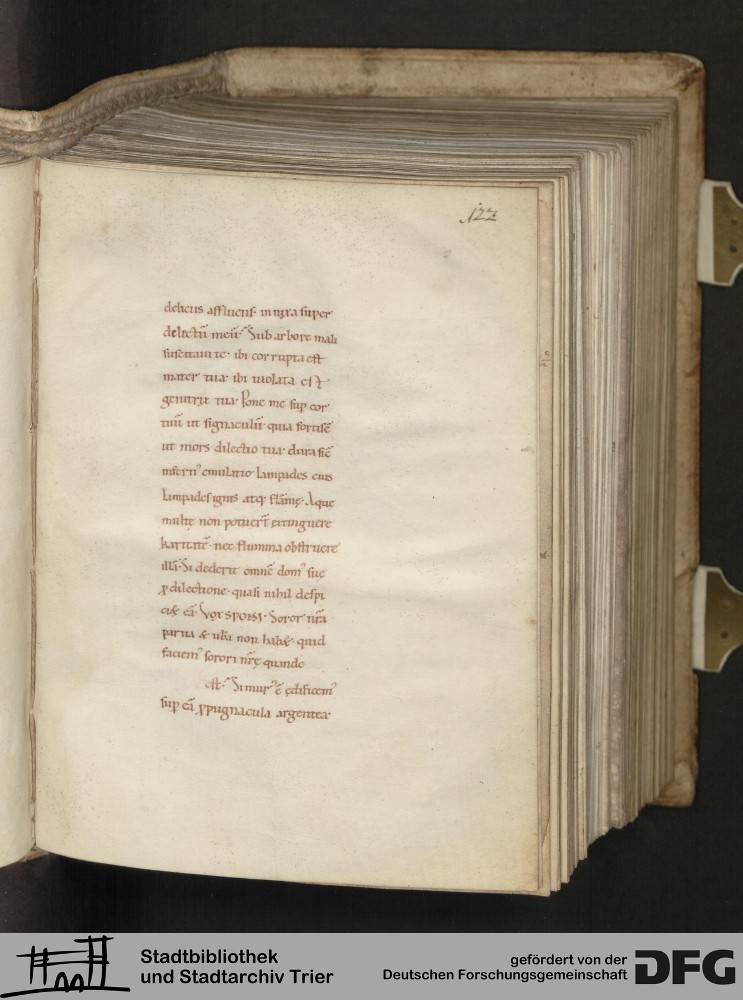 122
deliciis affluens· innixa super
dilectū meū· Sub arbore mali
suscitaui te· ibi corrupta est
mater tua· ibi uiolata est
genitrix tua· Pone me sup cor
tuū ut signaculū· quia fortis ē
ut mors dilectio tua· dura sič
infernꝰ emulatio· lampades eius
lampades ignis atq; flāmę· Aque
multę non potuerт̄ extinguere
karitatē· nec flumina obstruere
illā· Si dederit omnē domꝰ sue
ꝓ dilectione· quasi nihil despi
ciet eā· VOX SPONSI· Soror nr̄a
parua & ubera non habet· quid
faciemꝰ sorori nr̄ę quando
est· Si murꝰ ē ędificemꝰ
sup eū ꝓpugnacula argentea·
Stadtbibliothek
und Stadtarchiv Trier
gefördert von der
Deutschen Forschungsgemeinschaft
DFG